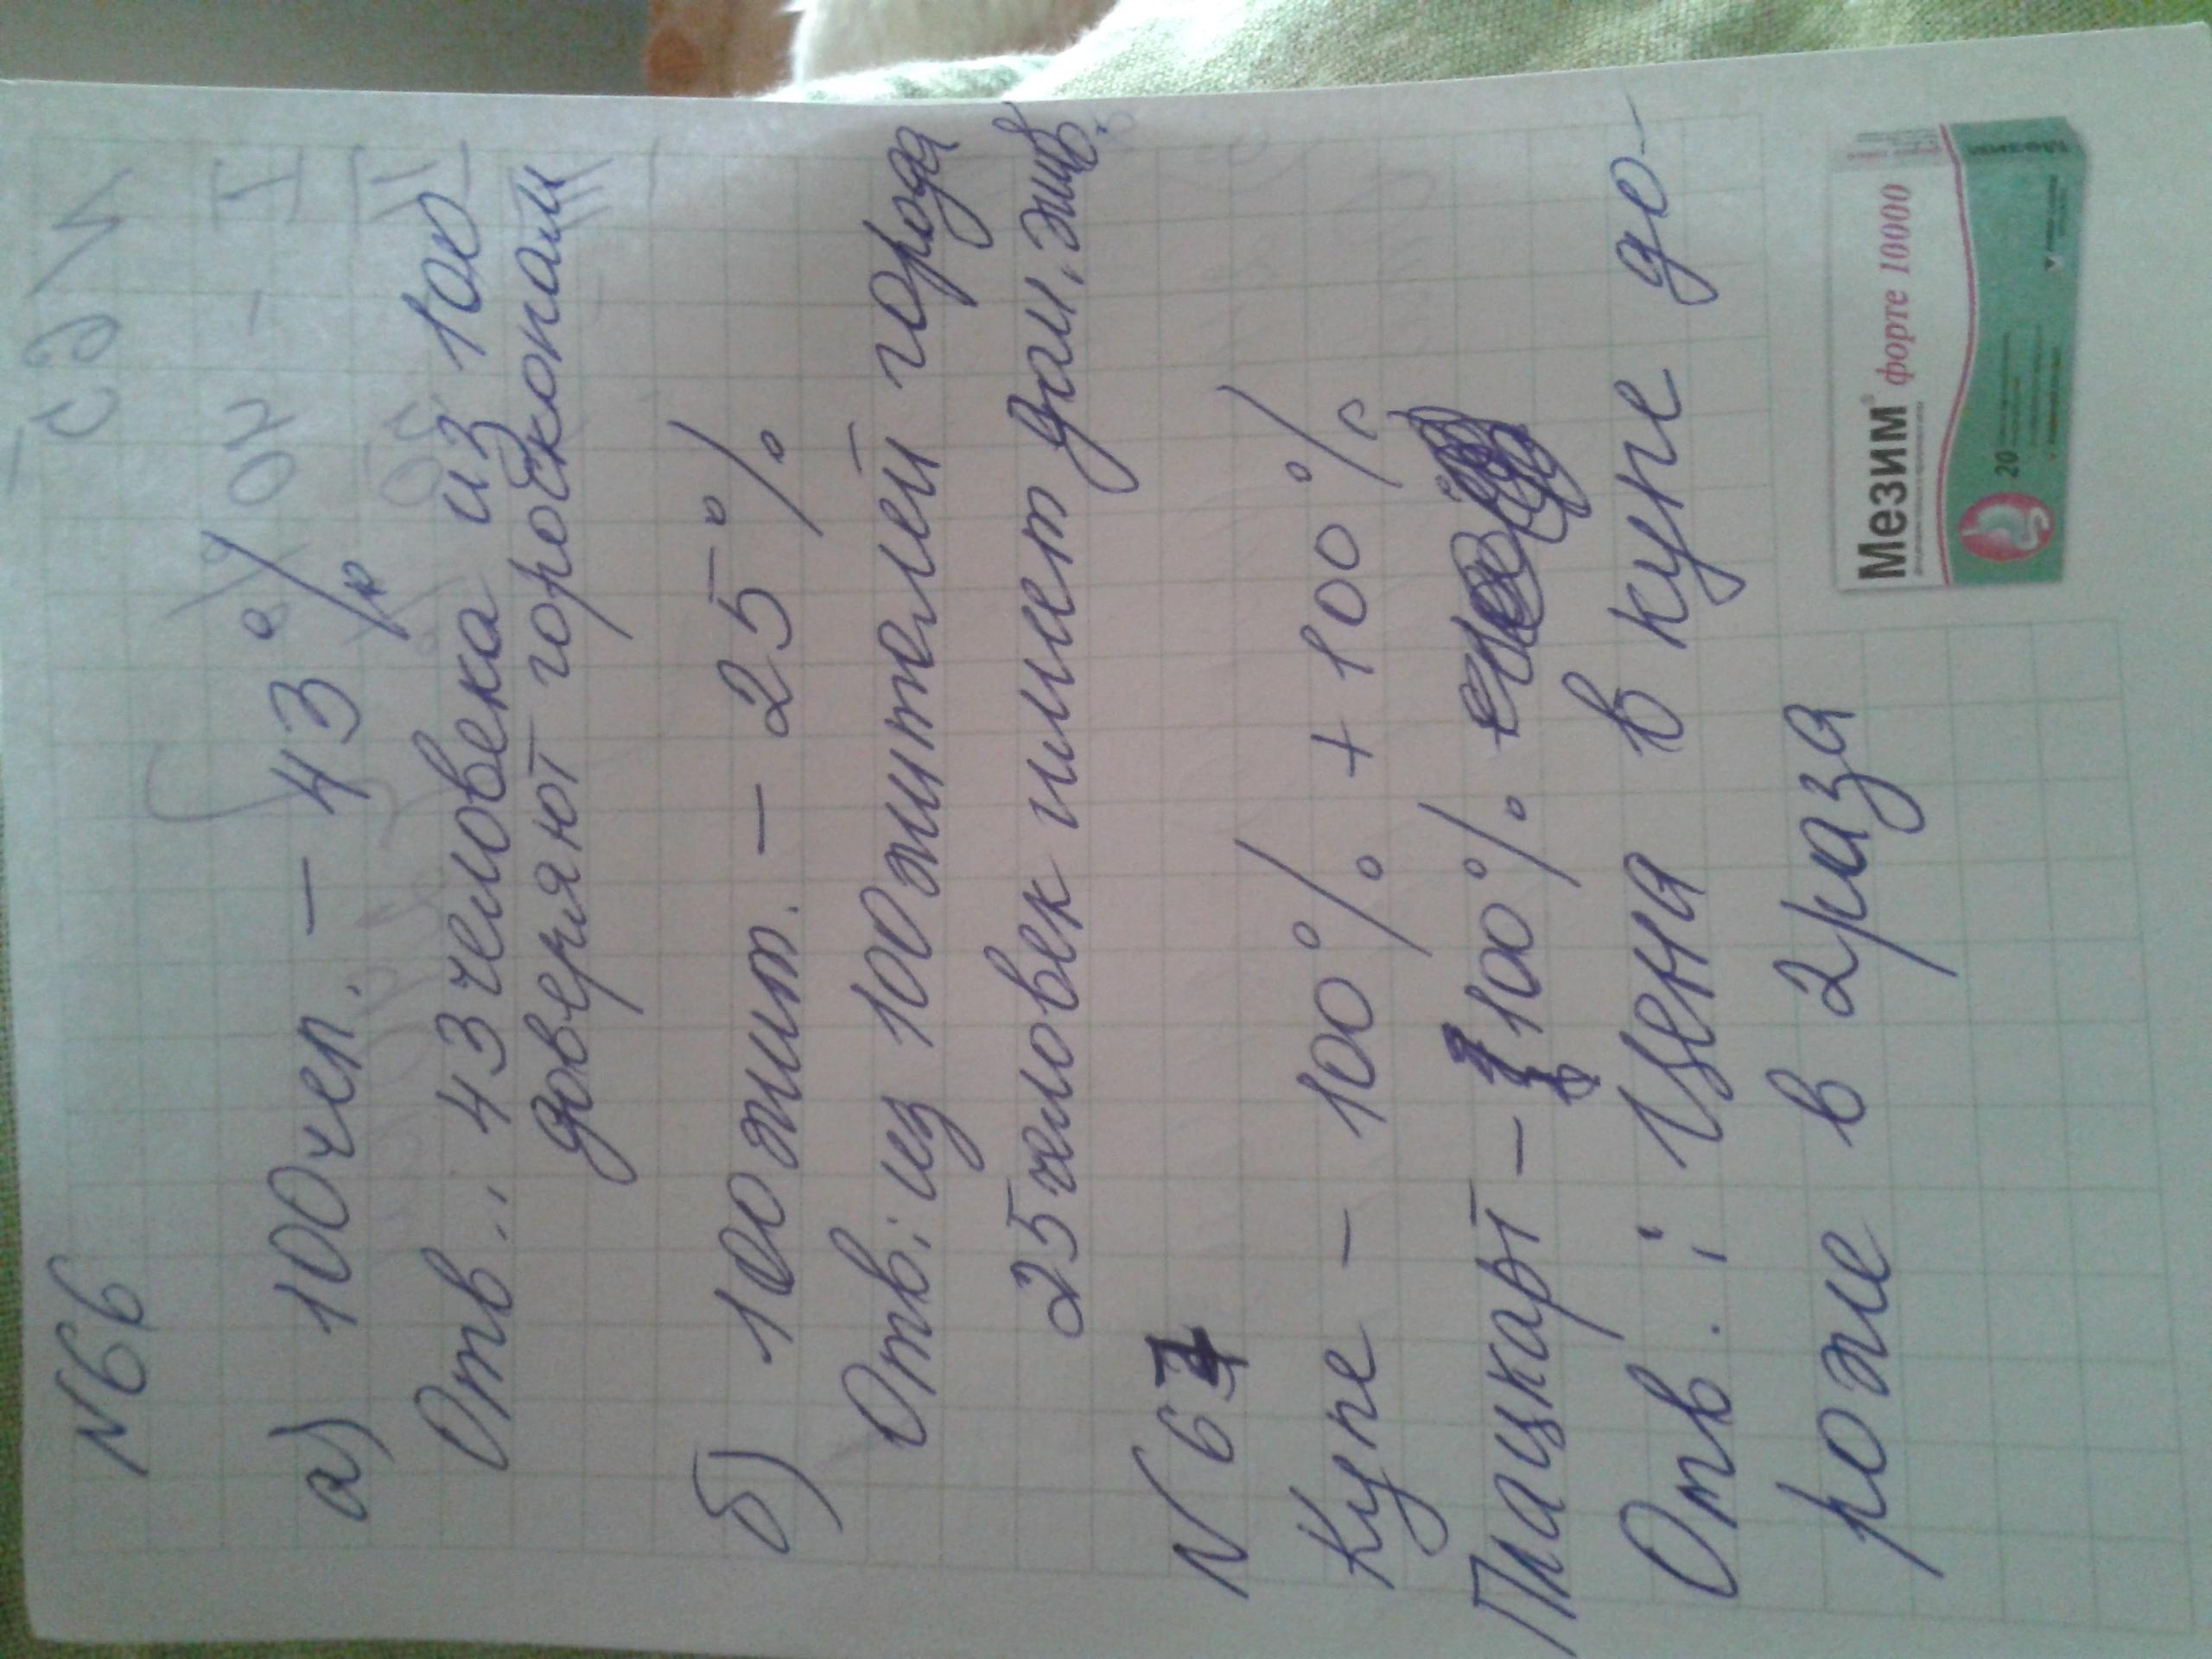 N66
а) 100 чел. – 43%
Отв.: 43 человека из 100
доверяют гороскопам
б) 100 жит. – 25%
Отв: из 100 жителей города
25 человек имеет дом. жив.
N 67
Купе – 100% + 100%
Плацкарт – 100%
Отв.: Цена в купе до-
роже в 2 раза
Мезим® форте 10000
20
Мезим